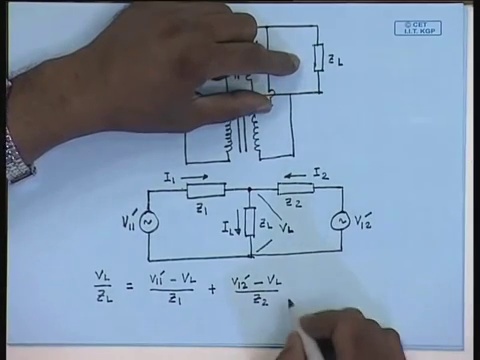 © CET
I.I.T. KGP
ZL
I1
I2
Z1
Z2
V11′
IL
ZL
VL
V12′
VL/ZL = (V11′ − VL)/Z1 + (V12′ − VL)/Z2